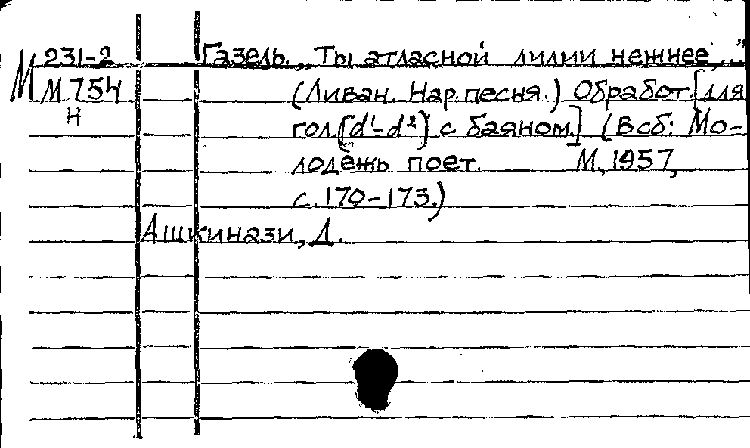 М 231-2 Газель. „Ты атласной лилии нежнее..."
М 754 (Ливан. Нар. песня.) Обработ. [для
Н гол. (d¹-d²) с баяном.] (В сб: Мо-
лодёжь поет. М, 1957,
с. 170-173.)
Ашкинази, Д.